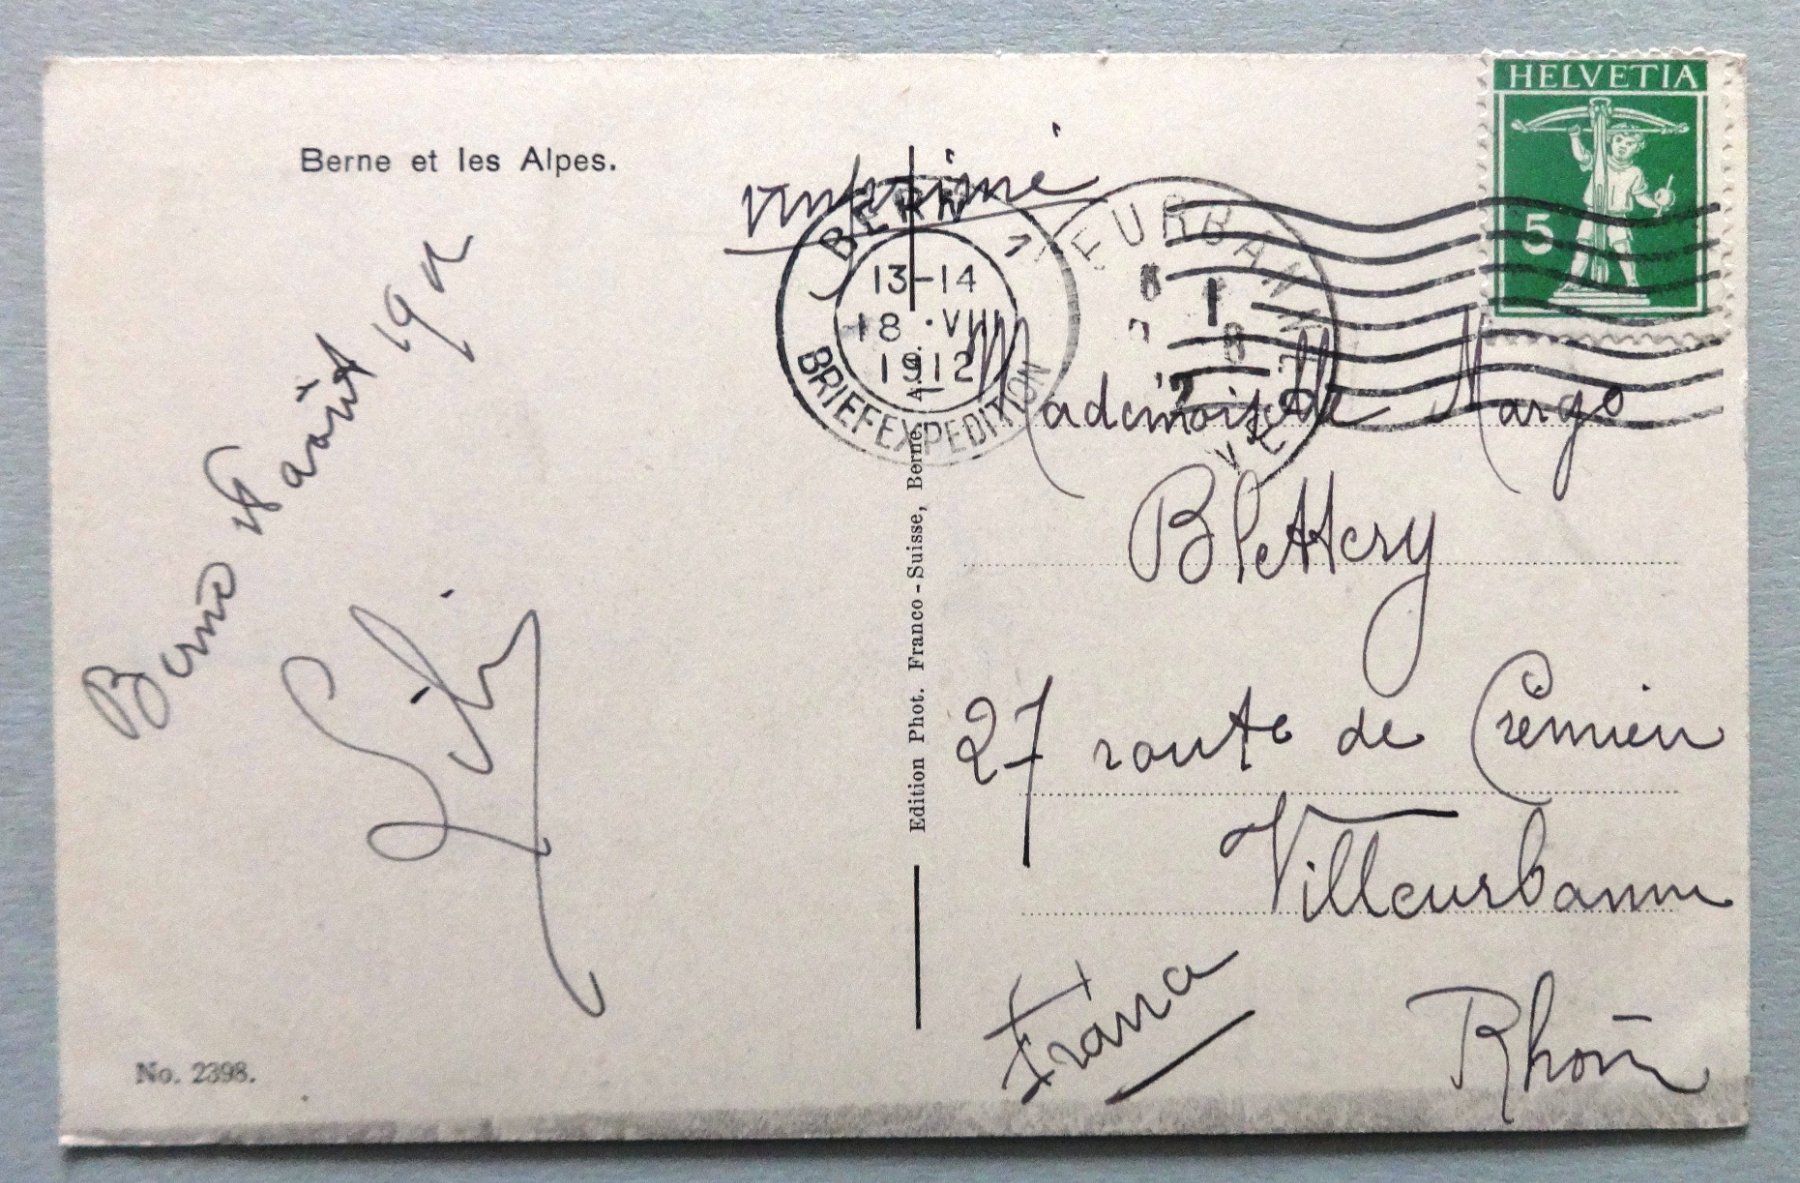 Berne et les Alpes.
imprimé
HELVETIA
5
BERN 1
13-14
18.VIII
1912
BRIEFEXPEDITION
VILLEURBANNE
Berne 18 août 1912
Mademoiselle Margo
Blettery
27 route de Crémieu
Villeurbanne
Rhône
France
Edition Phot. Franco-Suisse, Berne. A.-G.
No. 2398.